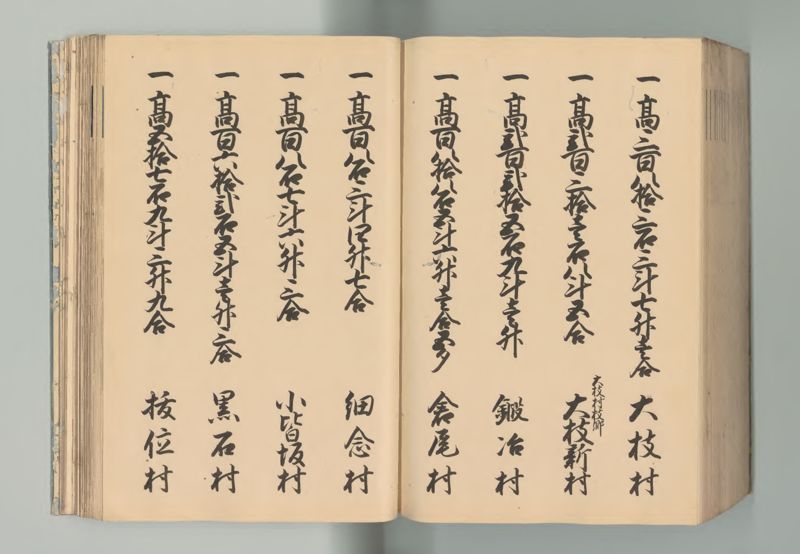 一高三百八拾三石三斗七升壱合 大枝村
一高弐百三拾壱石八斗五合 大枝村枝郷 大枝新村
一高弐百弐拾五石九斗壱升 鍛冶村
一高百八拾八石五斗六升壱合五夕 倉尾村
一高百八石三斗四升七合 細念村
一高百八石七斗六升三合 小皆坂村
一高百六拾弐石五斗壱升三合 黒石村
一高五拾七石九斗三升九合 抜位村